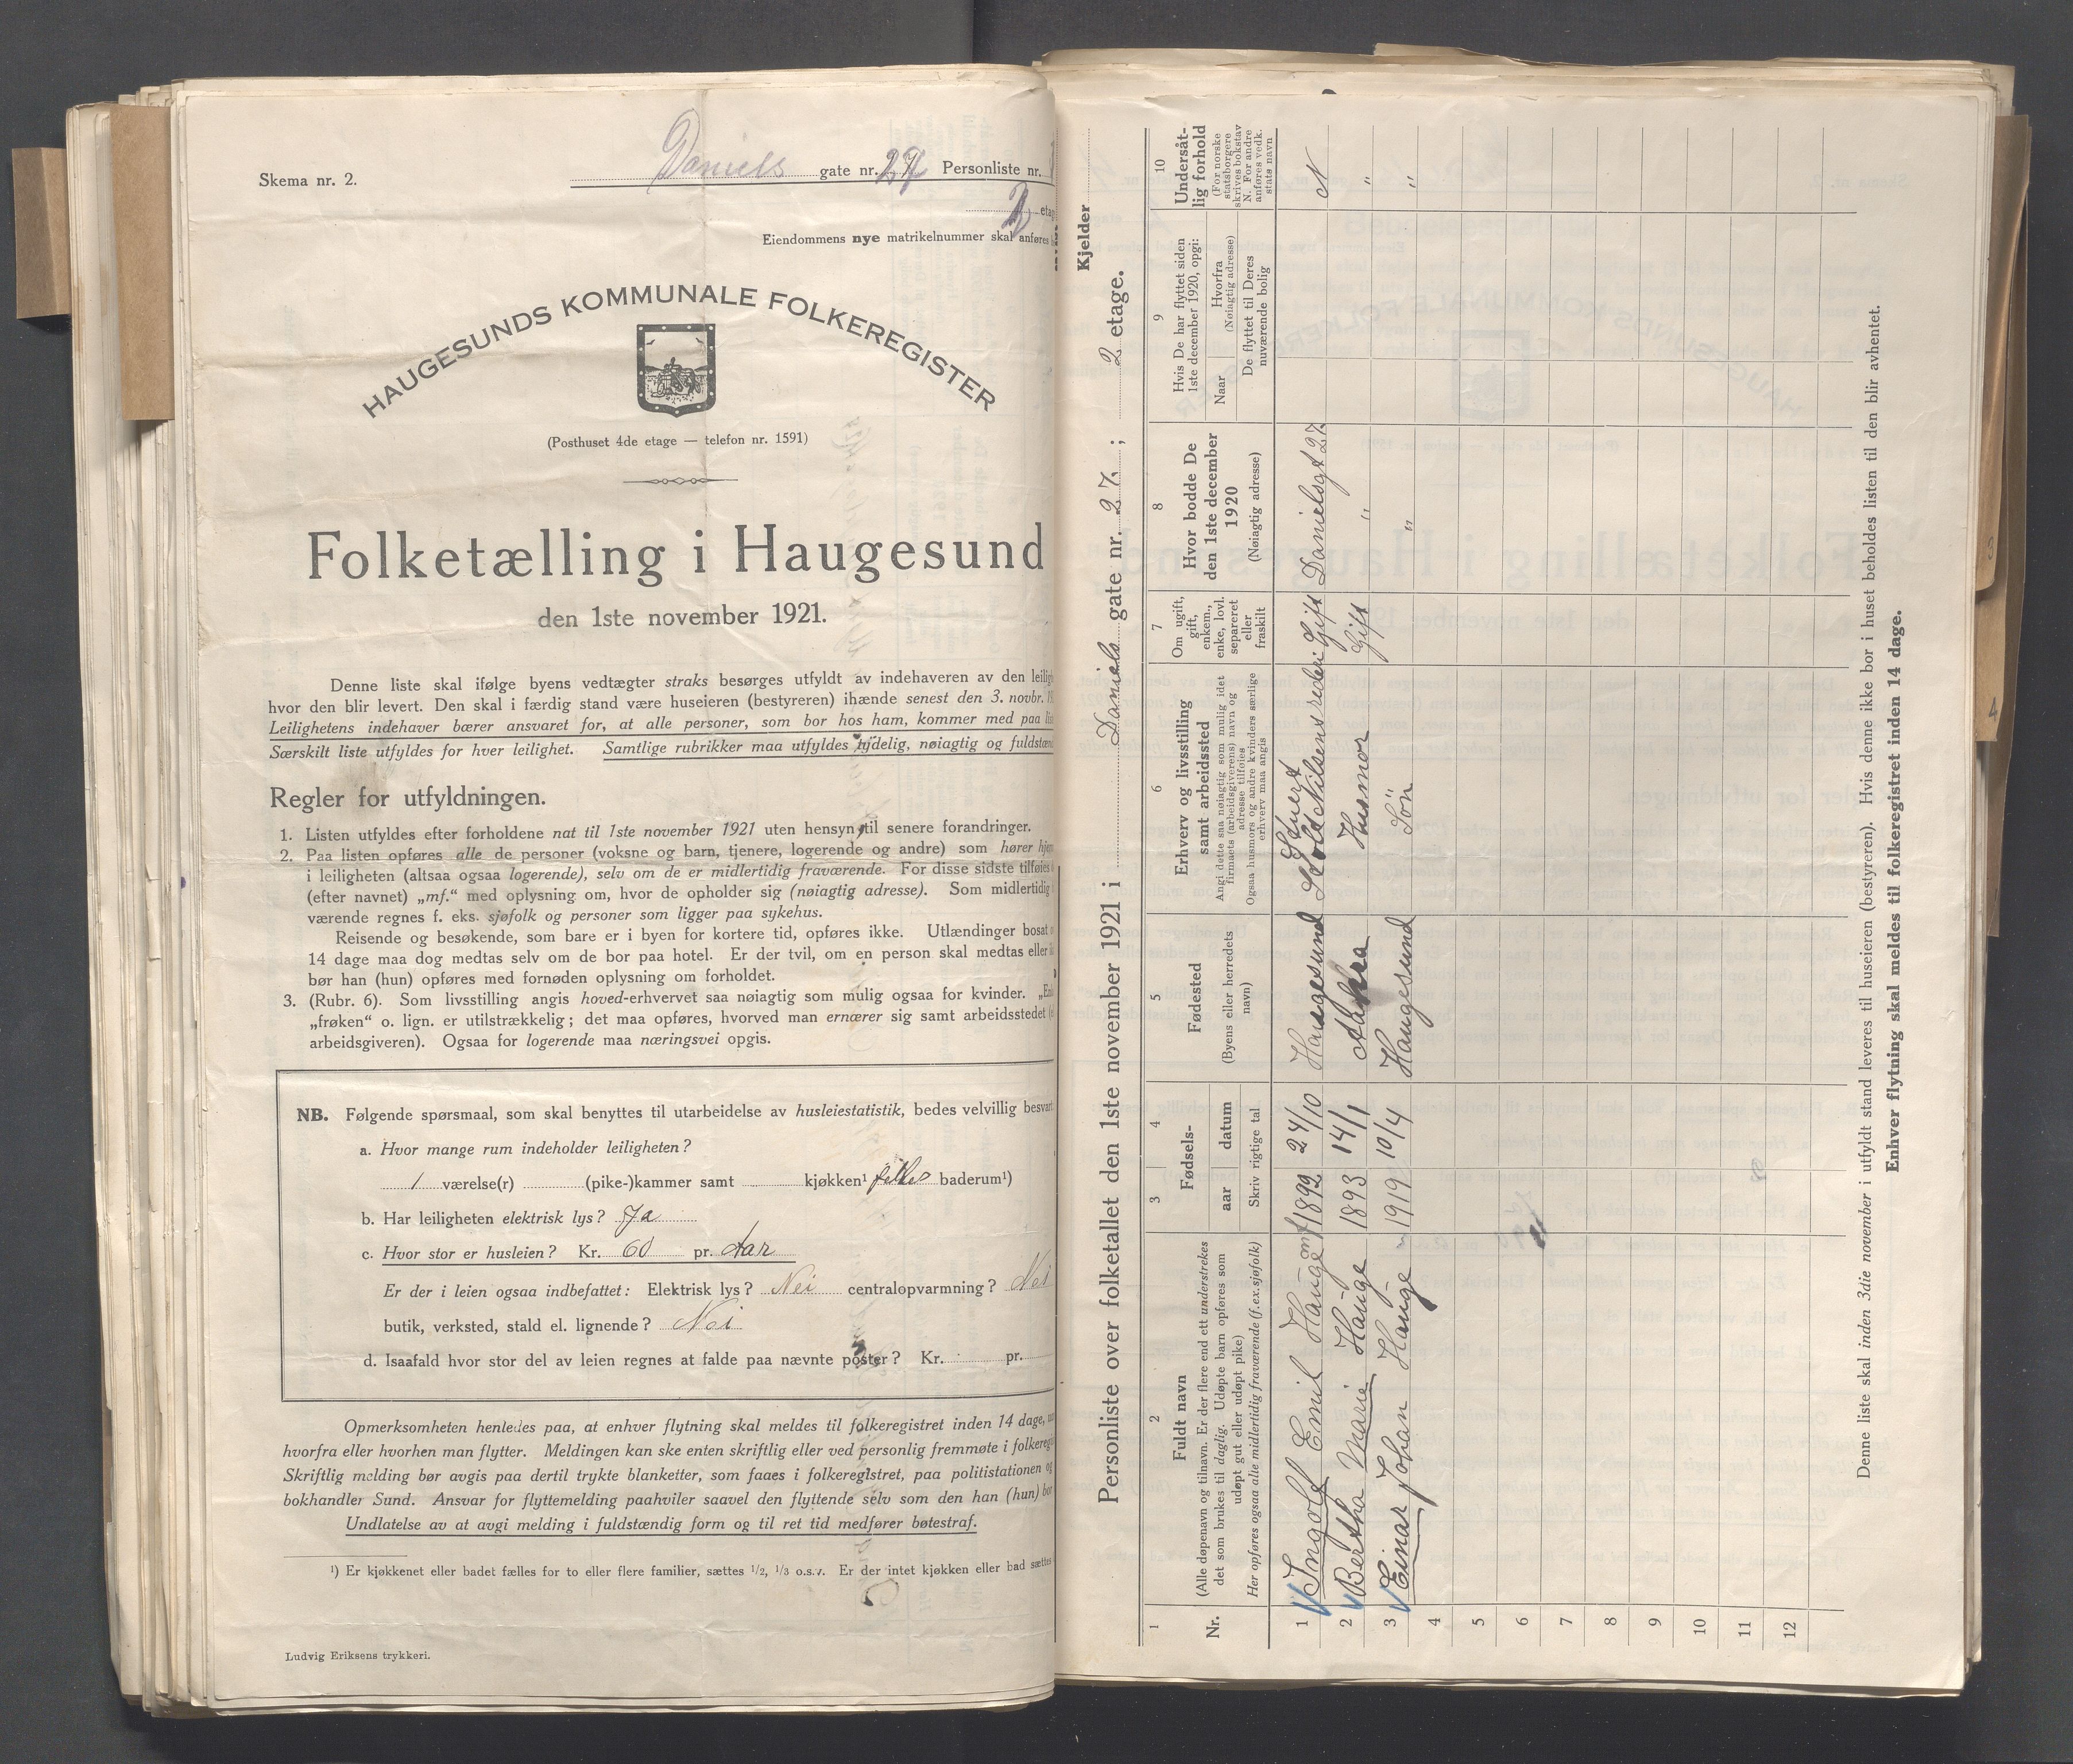 Skema nr. 2.
Daniels gate nr. 27 Personliste nr.
2 etag
Eiendommens nye matrikelnummer skal anføres
HAUGESUNDS KOMMUNALE FOLKEREGISTER
(Posthuset 4de etage — telefon nr. 1591)
Folketælling i Haugesund
den 1ste november 1921.
Denne liste skal ifølge byens vedtægter straks besørges utfyldt av indehaveren av den leilig
hvor den blir levert. Den skal i færdig stand være huseieren (bestyreren) ihænde senest den 3. novbr.
Leilighetens indehaver bærer ansvaret for, at alle personer, som bor hos ham, kommer med paa
Særskilt liste utfyldes for hver leilighet. Samtlige rubrikker maa utfyldes tydelig, nøiagtig og fuldstæn
Regler for utfyldningen.
1. Listen utfyldes efter forholdene nat til 1ste november 1921 uten hensyn til senere forandringer.
2. Paa listen opføres alle de personer (voksne og barn, tjenere, logerende og andre) som hører hje
i leiligheten (altsaa ogsaa logerende), selv om de er midlertidig fraværende. For disse sidste tilføies
(efter navnet) „mf.“ med oplysning om, hvor de opholder sig (nøiagtig adresse). Som midlertidig
værende regnes f. eks. sjøfolk og personer som ligger paa sykehus.
Reisende og besøkende, som bare er i byen for kortere tid, opføres ikke. Utlændinger bosat
14 dage maa dog medtas selv om de bor paa hotel. Er der tvil, om en person skal medtas eller
bør han (hun) opføres med fornøden oplysning om forholdet.
3. (Rubr. 6). Som livsstilling angis hoved-erhvervet saa nøiagtig som mulig ogsaa for kvinder. „En
„frøken“ o. lign. er utilstrækkelig; det maa opføres, hvorved man ernærer sig samt arbeidsstedet
arbeidsgiveren). Ogsaa for logerende maa næringsvei opgis.
NB. Følgende spørsmaal, som skal benyttes til utarbeidelse av husleiestatistik, bedes velvillig besvart
a. Hvor mange rum indeholder leiligheten?
1 værelse(r) (pike-)kammer samt kjøkken¹ felles baderum¹)
b. Har leiligheten elektrisk lys? Ja
c. Hvor stor er husleien? Kr. 60 pr. Aar
Er der i leien ogsaa indbefattet: Elektrisk lys? Nei centralopvarmning? Nei
butik, verksted, stald el. lignende? Nei
d. Isaafald hvor stor del av leien regnes at falde paa nævnte poster? Kr. pr.
Opmerksomheten henledes paa, at enhver flytning skal meldes til folkeregistret inden 14 dage,
hvorfra eller hvorhen man flytter. Meldingen kan ske enten skriftlig eller ved personlig fremmøte i folkereg
Skriftlig melding bør avgis paa dertil trykte blanketter, som faaes i folkeregistret, paa politistationen
bokhandler Sund. Ansvar for flyttemelding paahviler saavel den flyttende selv som den han (hun)
Undlatelse av at avgi melding i fuldstændig form og til ret tid medfører bøtestraf.
¹) Er kjøkkenet eller badet fælles for to eller flere familier, sættes 1/2, 1/3 o.s.v. Er der intet kjøkken eller bad sættes
Ludvig Eriksens trykkeri.
Kjelder
Personliste over folketallet den 1ste november 1921 i Daniels gate nr. 27. ; 2 etage.
1 2 3 4 5 6 7 8 9 10
Nr.
Fuldt navn
(Alle døpenavn og tilnavn. Er der flere end ett understrekes
det som brukes til daglig. Udøpte barn opføres som
udøpt gut eller udøpt pike)
Her opføres ogsaa alle midlertidig fraværende (f.ex. sjøfolk)
Fødsels-
aar datum
Skriv rigtige tal
Fødested
(Byens eller herredets
navn)
Erhverv og livsstilling
samt arbeidssted
Angi dette saa nøiagtig som mulig idet
firmaets (arbeidsgiverens) navn og
adresse tilføies
Ogsaa husmors og andre kvinders særlige
erhverv maa angis
Om ugift,
gift,
enkem.,
enke, lovl.
separeret
eller
fraskilt
Hvor bodde De
den 1ste december
1920
(Nøiagtig adresse)
Hvis De har flyttet siden
1ste december 1920, opgi:
Naar
Hvorfra
(Nøiagtig adresse)
De flyttet til Deres
nuværende bolig
Undersåt-
lig forhold
(For norske
statsborgere
skrives bokstav
N. For andre
anføres vedk.
stats navn
1 Ingolf Emil Hauge mf 1892 24/10 Haugesund Stuert Skibs Nilsens rederi Gift Danielsgt 27 N
2 Bertha Marie Hauge 1893 14/1 Aakra Husmor Gift " "
3 Einar Johan Hauge 1919 10/4 Haugesund Sön " "
4
5
6
7
8
9
10
11
12
Denne liste skal inden 3die november i utfyldt stand leveres til huseieren (bestyreren). Hvis denne ikke bor i huset beholdes listen til den blir avhentet.
Enhver flytning skal meldes til folkeregistret inden 14 dage.